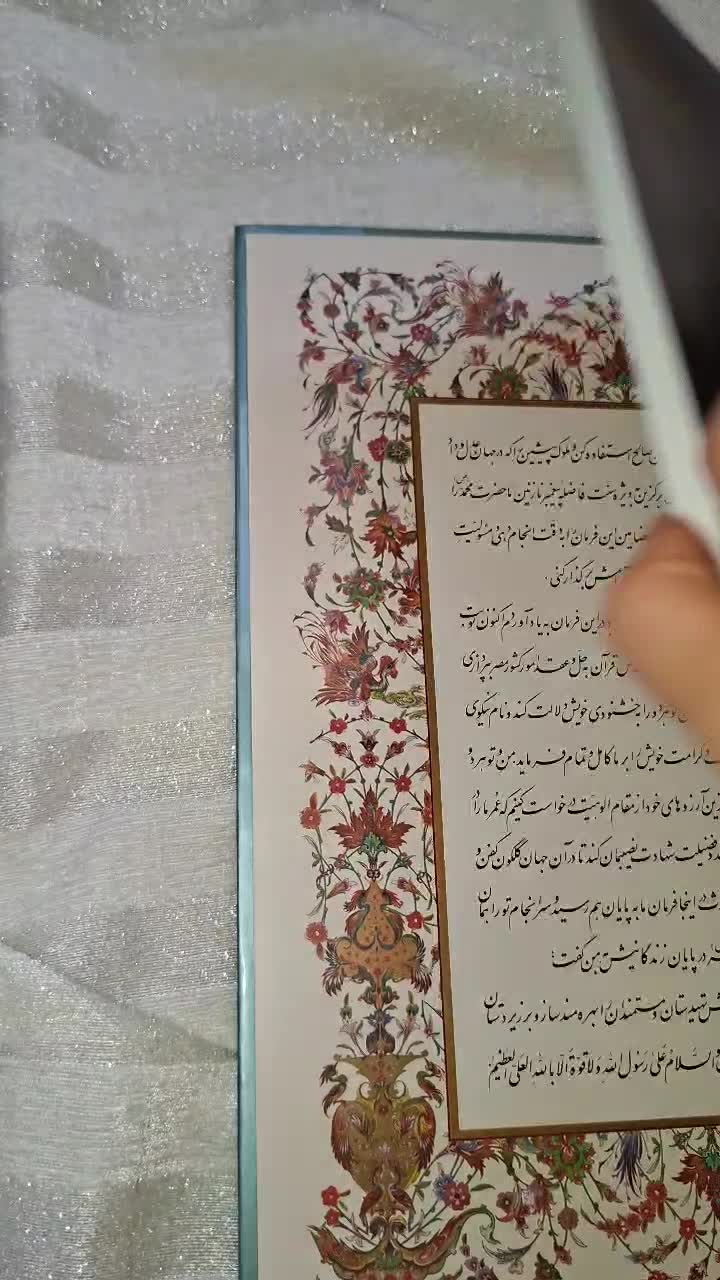 صالح استفاده کن و ملوک پیشین را که در جهان عدل و داد
برگزین، ویژه سنت فاضله پیغمبر نازنین ما حضرت محمد را
این فرمان را به دقت انجام دهی مسئولیت
گذار کنی.
در این فرمان به یاد آوردم اکنون نوبت
قرآن به حل و عقد امور کشور مصر بپردازی
را به خشنودی خویش دلالت کند و نام نیکوی
کرامت خویش را بر ما کامل و تمام فرماید. من و تو هر دو
آرزوهای خود از مقام الوهیت درخواست کنیم که عمر ما را در
فضیلت شهادت نصیبمان کند تا در آن جهان گلگون کفن و
اینجا فرمان ما به پایان هم رسید و سرانجام تو را بمان
در پایان زندگانیش به من گفت:
تهیدستان و مستمندان را بهره مند ساز و بر زیردستان
والسلام علی رسول الله ولا قوة الا بالله العلی العظیم